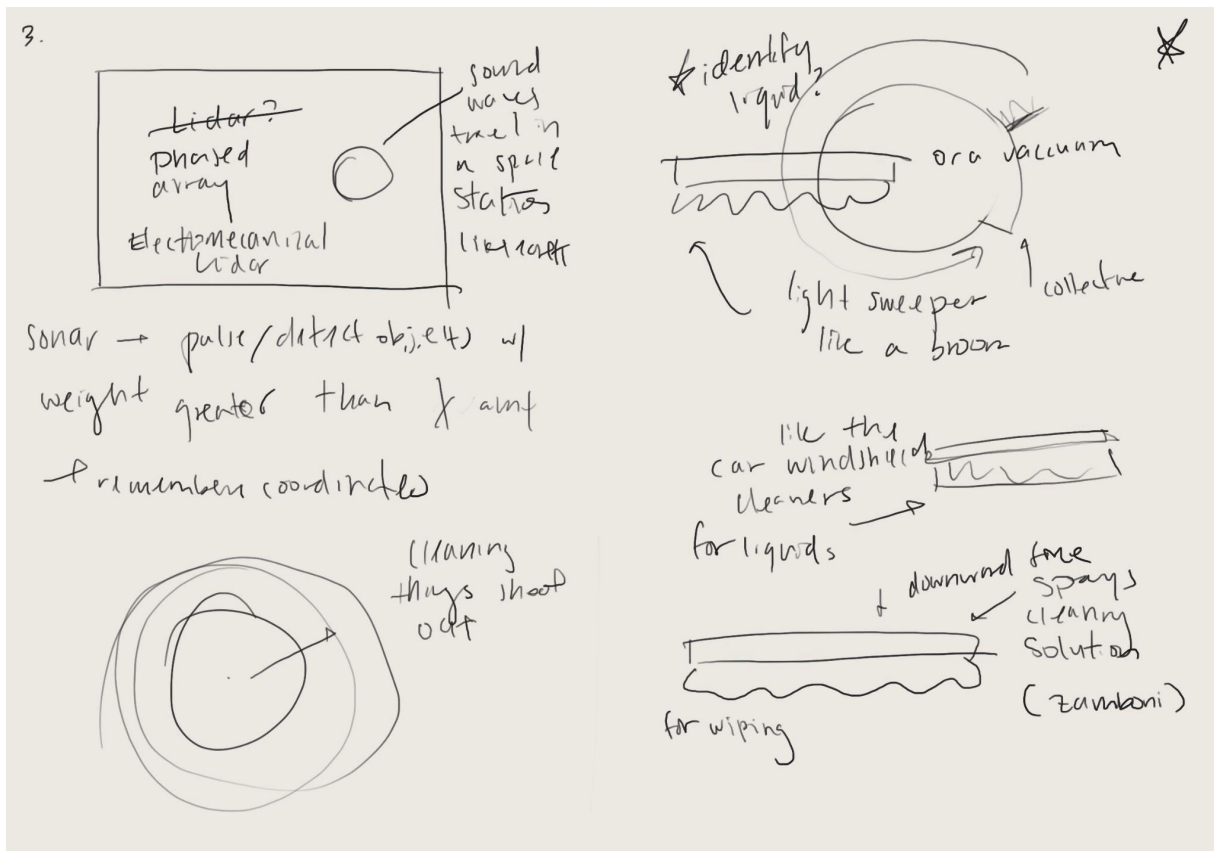 3.
Lidar?
phased
array
Electomecanical
Lidar
sound
waves
travel in
a space
station
like earth
sonar → pulse/detect objects w/
weight greater than X amt
→ remember coordinates
cleaning
things shoot
out
identify
liquid?
or a vaccuum
collective
light sweeper
like a broom
like the
car windshield
cleaners
for liquids
downward force
spays
cleaning
solution
(zamboni)
for wiping